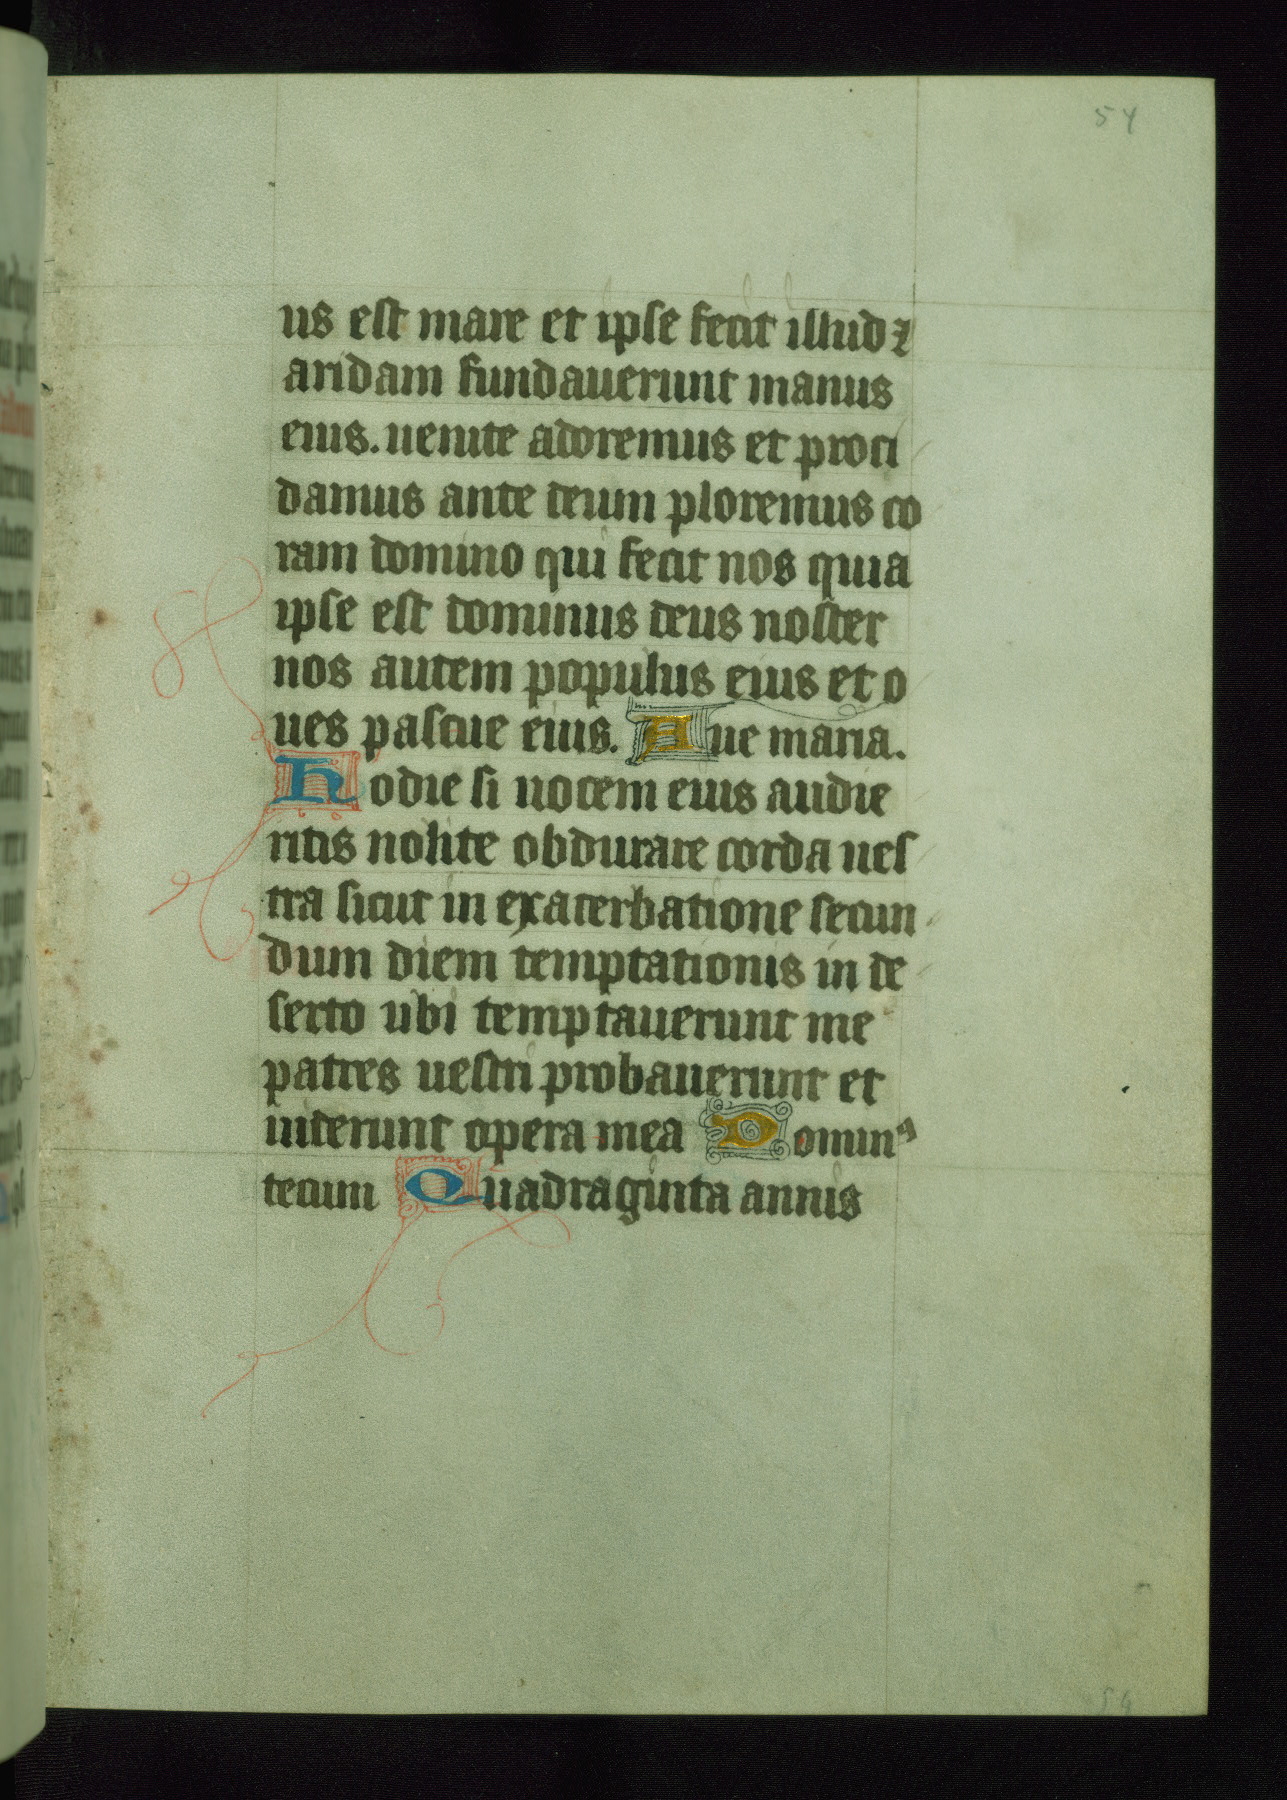 54
us est mare et ipse fecit illud ⁊
aridam fundauerunt manus
eius. uenite adoremus et proci
damus ante deum ploremus co
ram domino qui fecit nos quia
ipse est dominus deus noster
nos autem populus eius et o
ues pascue eius. Aue maria.
Hodie si uocem eius audie
ritis nolite obdurare corda ues
tra sicut in exacerbatione secun
dum diem temptationis in de
serto ubi temptauerunt me
patres uestri probauerunt et
uiderunt opera mea Dominꝰ
tecum Quadraginta annis
54